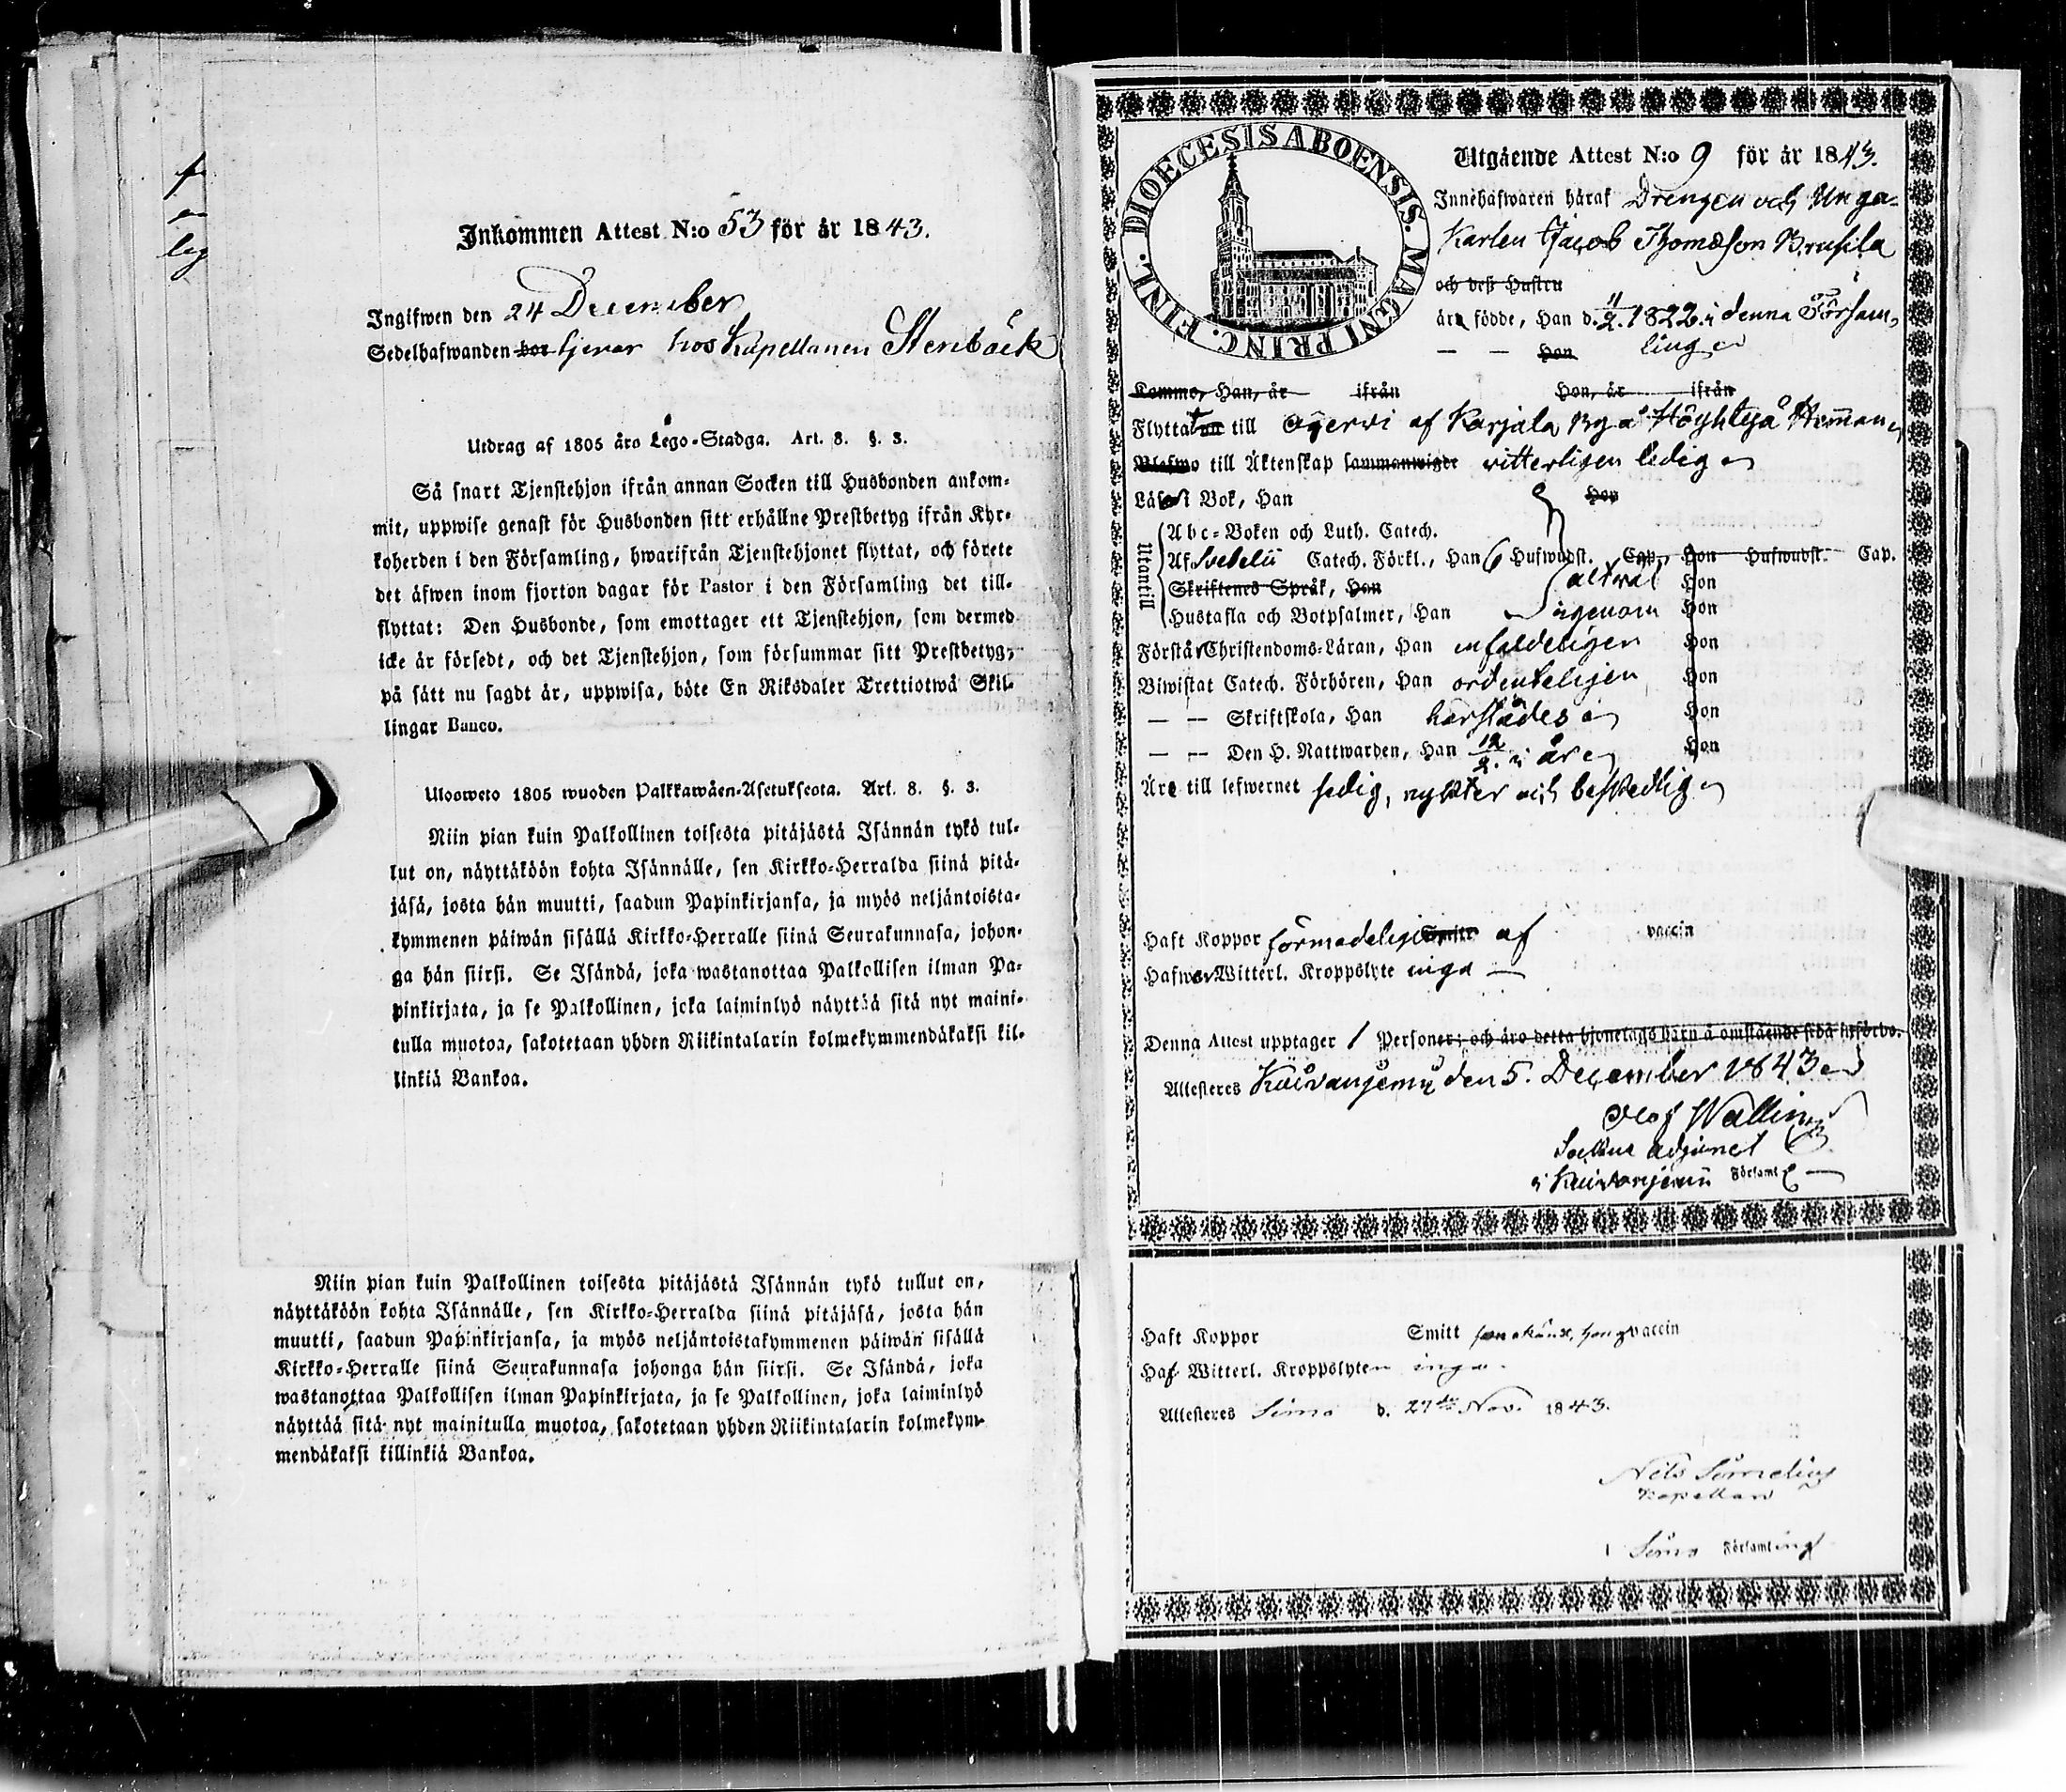 f
leg
Inkommen Attest N:o 53 för år 1843.
Ingifwen den 24 December
Sedelhafwanden bor tjenar hos Kapellanen Stenbäck
Utdrag af 1805 års Lego-Stadga. Art. 8. §. 3.
Så snart Tjenstehjon ifrån annan Socken till Husbonden ankom-
mit, uppwise genast för Husbonden sitt erhållne Prestbetyg ifrån Kyr-
koherden i den Församling, hwarifrån Tjenstehjonet flyttat, och förete
det äfwen inom fjorton dagar för Pastor i den Församling det till-
flyttat: Den Husbonde, som emottager ett Tjenstehjon, som dermed
icke är försedt, och det Tjenstehjon, som försummar sitt Prestbetyg,
på sätt nu sagdt är, uppwisa, böte En Riksdaler Trettiotwå Skil-
lingar Banco.
Ulosweto 1805 wuoden Palkkawäen-Asetuksesta. Art. 8. §. 3.
Niin pian kuin Palkollinen toisesta pitäjästä Isännän tykö tul-
lut on, näyttäköön kohta Isännälle, sen Kirkko-Herralda siinä pitä-
jäsä, josta hän muutti, saadun Papinkirjansa, ja myös neljäntoista-
kymmenen päiwän sisällä Kirkko-Herralle siinä Seurakunnasa, johon-
ga hän siirsi. Se Isändä, joka wastanottaa Palkollisen ilman Pa-
pinkirjata, ja se Palkollinen, joka laiminlyö näyttää sitä nyt maini-
tulla muotoa, sakotetaan yhden Riikintalarin kolmekymmendäkaksi kil-
linkiä Bankoa.
Niin pian kuin Palkollinen toisesta pitäjästä Isännän tykö tullut on,
näyttäköön kohta Isännälle, sen Kirkko-Herralda siinä pitäjäsä, josta hän
muutti, saadun Papinkirjansa, ja myös neljäntoistakymmenen päiwän sisällä
Kirkko-Herralle siinä Seurakunnasa johonga hän siirsi. Se Isändä, joka
wastanottaa Palkollisen ilman Papinkirjata, ja se Palkollinen, joka laiminlyö
näyttää sitä nyt mainitulla muotoa, sakotetaan yhden Riikintalarin kolmekym-
mendäkaksi killinkiä Bankoa.
DIOECESIS ABOENSIS. MAGNI PRINC. FINL.
Utgående Attest N:o 9 för år 1843.
Innehafwaren häraf Drengen och Unga-
Karlen Jacob Thomasson Brusila
och deß Hustru
äro födde, Han d. 11/2. 1822. i denna Försam-
— — Hon ling
Komme, Han, år ifrån Hon, år ifrån
Flyttat till af Karjala By Höyhtyä Hemman
Blefwo till Äktenskap sammanwigde witterligen ledig
Läser i Bok, Han Hon
Utantill
Abc-Boken och Luth. Catech.
Af Svebelii Catech. Förkl., Han 6 Hufwudst. Cap. Hon Hufwudst. Cap.
Skriftenes Språk, Han altwal Hon
Hustafla och Botpsalmer, Han igenom Hon
Förstår Christendoms-Läran, Han enfaldeligen Hon
Biwistat Catech. Förhören, Han ordenteligen Hon
— — Skriftskola, Han härstädes Hon
— — Den H. Nattwarden, Han i år Hon
Äre till lefwernet sedig, nykter och beskedlig
Haft Koppor förmodeligen Smitt af vaccin
Hafwer Witterl. Kroppslyte inga —
Denna Attest upptager 1 Personer; och äro detta hjonelags barn å omstående sida införde.
Attesteres Koivanjemi den 5. December 1843
Olof Wallin
Sockne Adjunct
i Kuivanjemi Församl —
Haft Koppor Smitt vaccin
Haf Witterl. Kroppslyten inga.
Attesteres Simo d. 27de Nov. 1843.
Nils Simelius
Kapellan
i Simo Församling